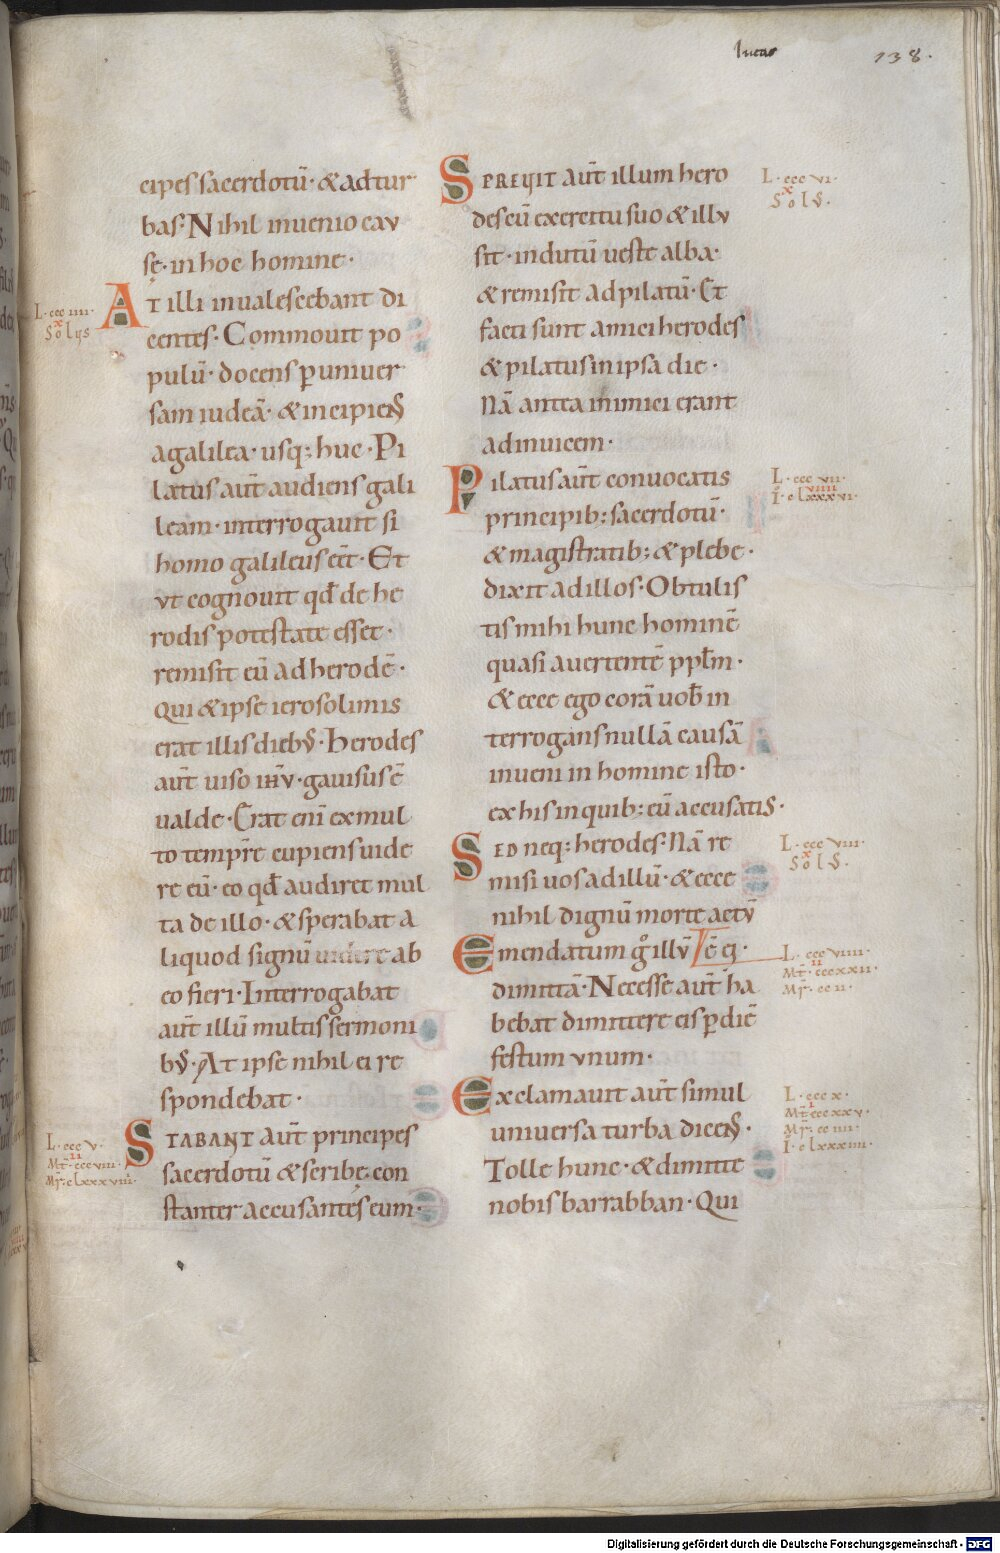 lucas
138.
cipes sacerdotū· & ad tur
bas· Nihil inuenio cau
sę· in hoc homine·
L· ccc iiii·
x
Solus
AT illi inualescebant di
centes· Commouit po
pulū· docens p̲ uniuer
sam iudeā· & incipienS
a galilea· usq; huc· Pi
latus aūt audiens gali
leam· interrogauit si
homo galileus eēt· Et
vt cognouit qđ de he
rodis potestate esset·
remisit eū ad herodē·
qui & ipse ierosolimis
erat illis diebꝰ· Herodes
aūt uiso ihv̄· gauisus ē
ualde· Erat eni ex mul
to tempr̄e cupiens uide
re eū· eo qđ audiret mul
ta de illo· & sperabat a
liquod signū uidere ab
eo fieri· Interrogabat
aūt illū multis sermoni
bꝰ· At ipse nihil ei re
spondebat·
L· ccc v·
ii
Mt̄· ccc viii·
Mr̄· c lxxx viii·
STABANT aūt principes
sacerdotū & scribę con
stanter accusantes eum·
SPREUIT aūt illum hero
L· ccc vi·
x
Solꝰ·
des cū exercitu suo & illv
sit· indutū ueste alba·
& remisit ad pilatū· Et
facti sunt amici herodes
& pilatus in ipsa die·
Nā antea inimici erant
ad inuicem·
Pilatus aūt conuocatis
L· ccc vii·
viiii
I· c lxxxvi·
principib; sacerdotū·
& magistratib; & plebe·
dixit ad illos· Obtulis
tis mihi hunc hominē
quasi auertentē ppl̄m·
& ecce ego corā uob̄ in
terrogans nullā causā
inueni in homine isto·
ex his in quib; eū accusatiS·
SED neq; herodes· Nā re
L· ccc viii·
x
Solꝰ·
misi uos ad illū· & ecce
nihil dignū morte actv̄
Emendatum g̊ illv̄
ē ei·
L· ccc viiii·
ii
Mt̄· cccxxii·
Mr̄· cc ii·
dimittā· Necesse aūt ha
bebat dimittere eis p̲ diē
festum vnum·
Exclamauit aūt simul
L· ccc x·
i
Mt̄ cccxxv·
Mr̄· cc iiii·
I· c lxxxiiii·
uniuersa turba dicenS·
Tolle hunc· & dimitte
nobis barrabban· Qui
Digitalisierung gefördert durch die Deutsche Forschungsgemeinschaft - DFG